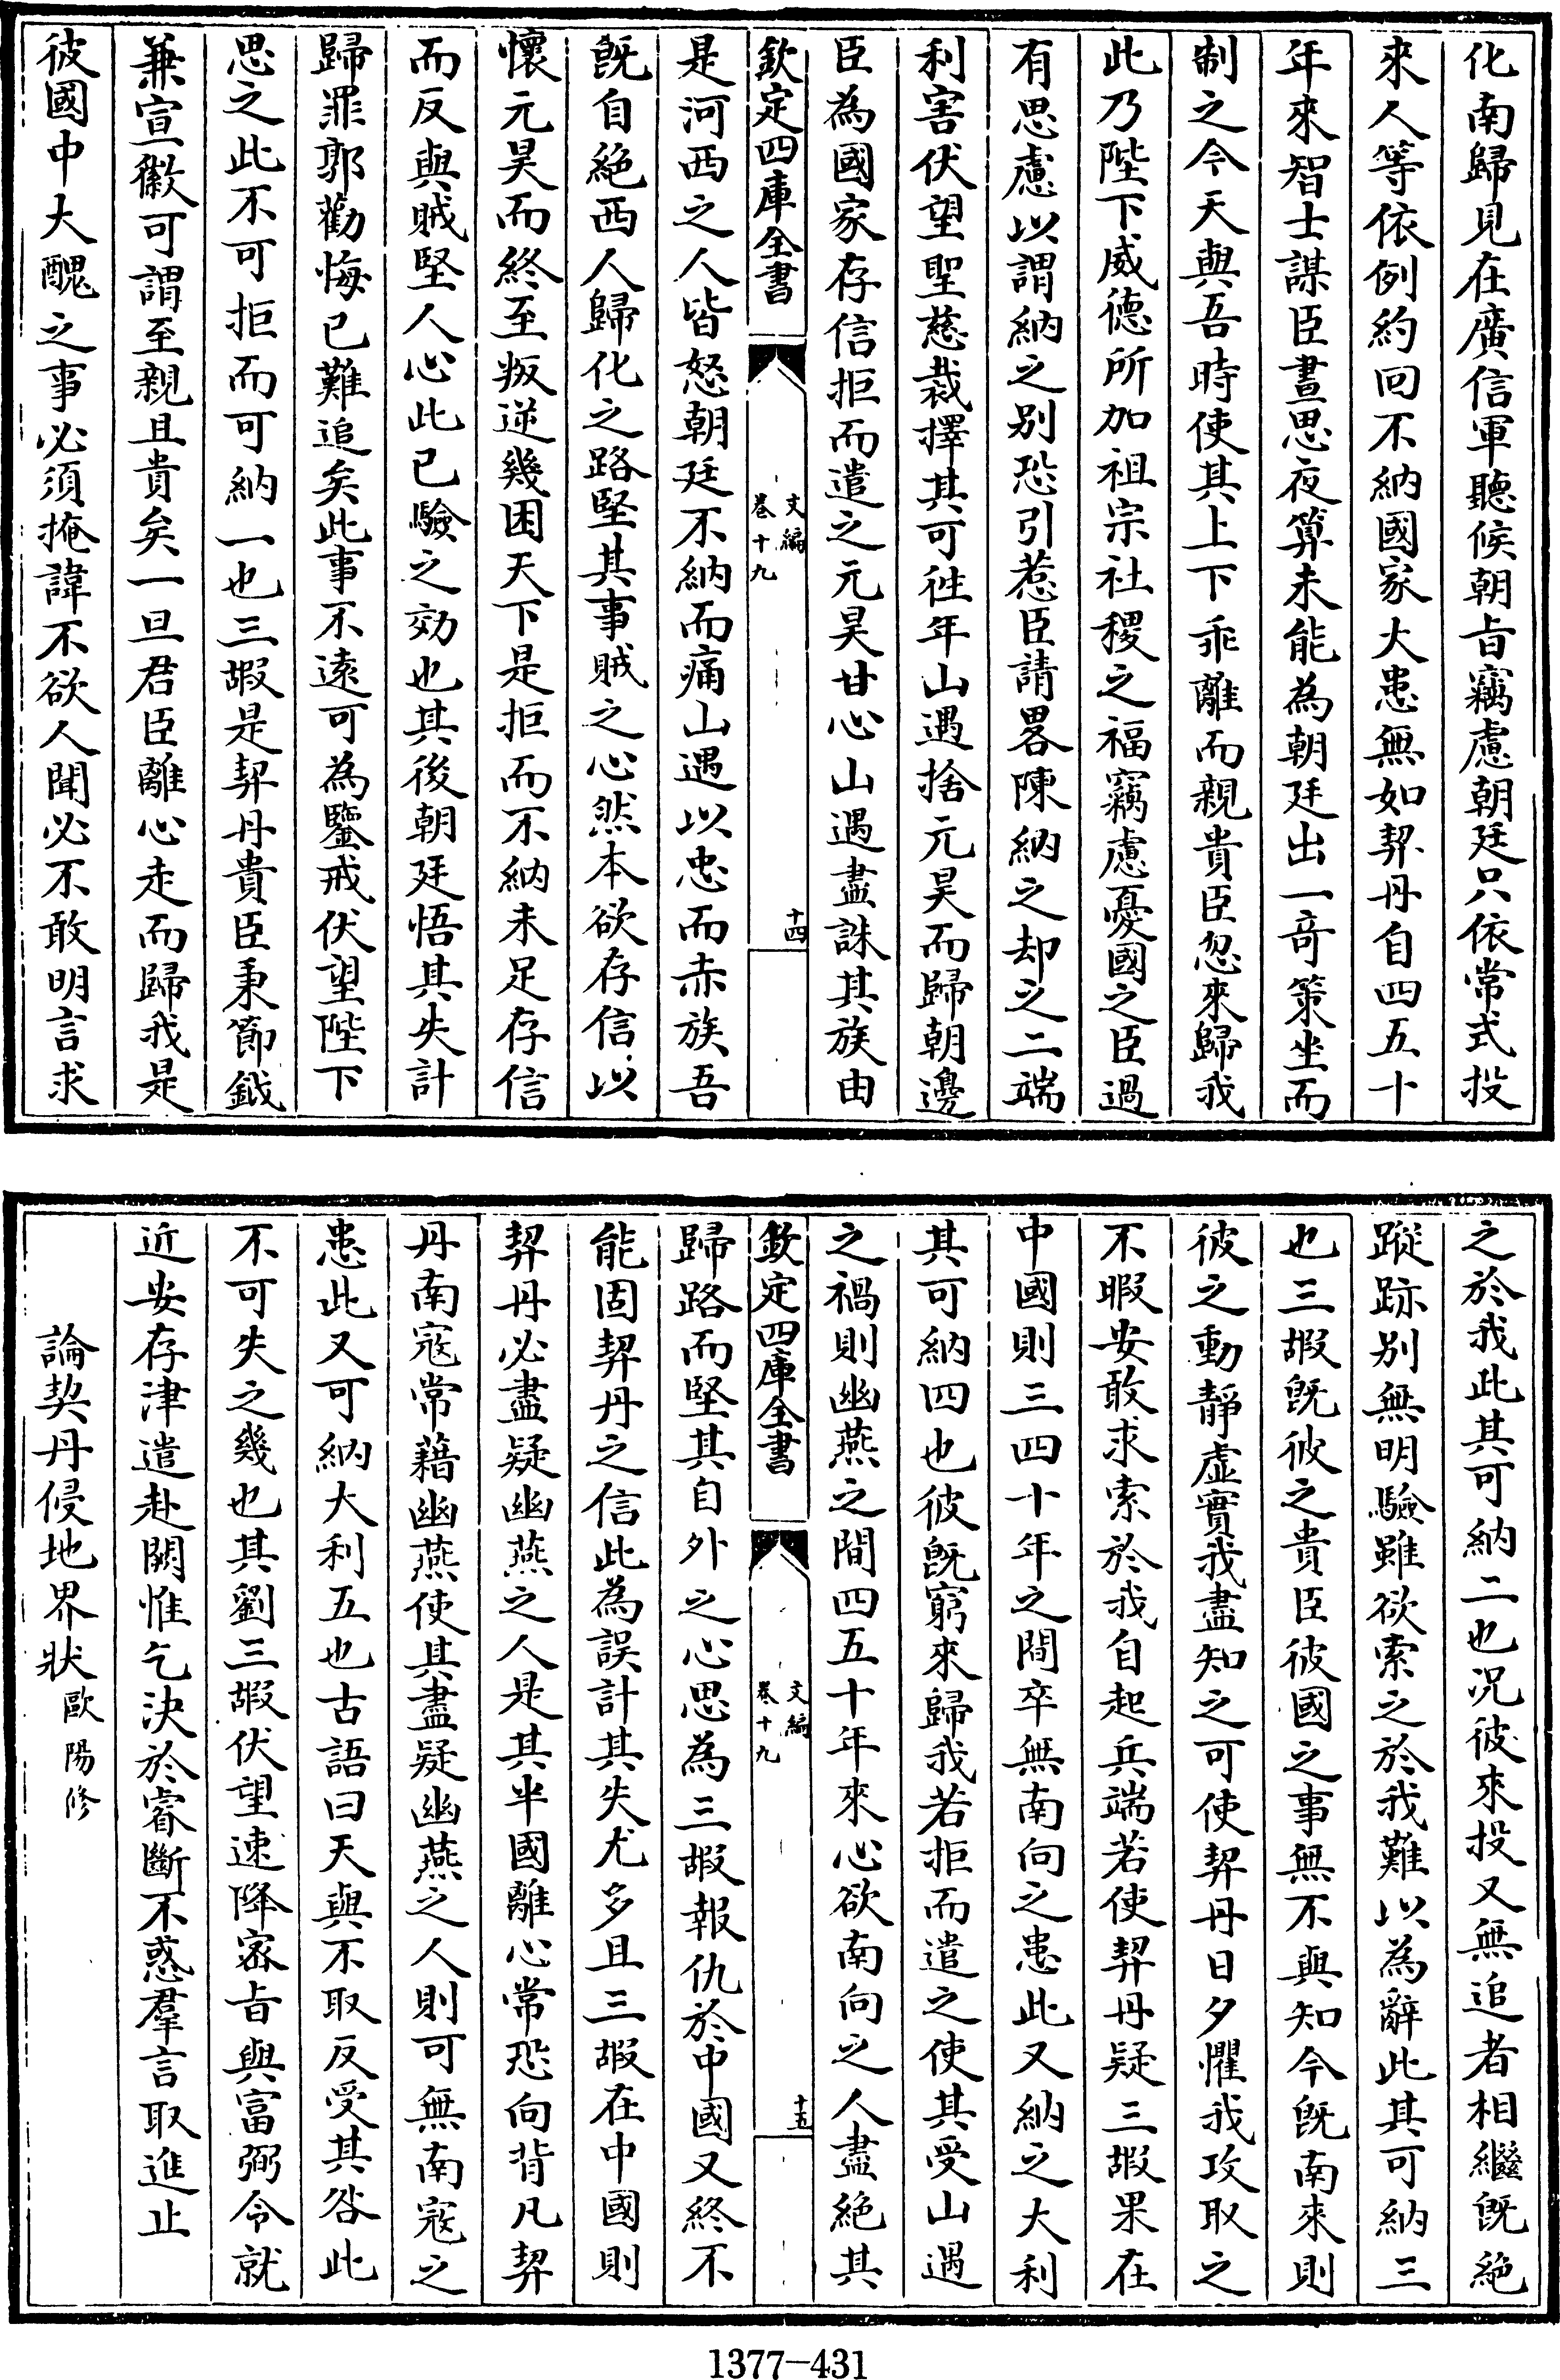 化南歸見在廣信軍聽候朝㫖竊慮朝廷只依常式投
來人等依例約回不納國家大患無如契丹自四五十
年來智士謀臣晝思夜算未能為朝廷出一竒策坐而
制之今天與吾時使其上下乖離而親貴臣忽來歸我
此乃陛下威德所加祖宗社稷之福竊慮憂國之臣過
有思慮以謂納之别恐引惹臣請畧陳納之却之二端
利害伏望聖慈裁擇其可往年山遇捨元昊而歸朝邊
臣為國家存信拒而遣之元昊甘心山遇盡誅其族由
欽定四庫全書
文編
卷十九
十四
是河西之人皆怒朝廷不納而痛山遇以忠而赤族吾
既自絶西人歸化之路堅其事賊之心然本欲存信以
懷元昊而終至叛逆幾困天下是拒而不納未足存信
而反與賊堅人心此已驗之効也其後朝廷悟其失計
歸罪郭勸悔已難追矣此事不逺可為鑒戒伏望陛下
思之此不可拒而可納一也三嘏是契丹貴臣秉節鉞
兼宣徽可謂至親且貴矣一旦君臣離心走而歸我是
彼國中大醜之事必須掩諱不欲人聞必不敢明言求
之於我此其可納二也况彼來投又無追者相繼既絶
蹤跡别無明驗雖欲索之於我難以為辭此其可納三
也三嘏既彼之貴臣彼國之事無不與知今既南來則
彼之動靜虚實我盡知之可使契丹日夕懼我攻取之
不暇安敢求索於我自起兵端若使契丹疑三嘏果在
中國則三四十年之間卒無南向之患此又納之大利
其可納四也彼既窮來歸我若拒而遣之使其受山遇
之禍則幽燕之間四五十年來心欲南向之人盡絶其
欽定四庫全書
文編
卷十九
十五
歸路而堅其自外之心思為三嘏報仇於中國又終不
能固契丹之信此為誤計其失尤多且三嘏在中國則
契丹必盡疑幽燕之人是其半國離心常恐向背凡契
丹南寇常藉幽燕使其盡疑幽燕之人則可無南寇之
患此又可納大利五也古語曰天與不取反受其咎此
不可失之幾也其劉三嘏伏望速降宻㫖與富弼令就
近安存津遣赴闕惟乞決於睿斷不惑羣言取進止
論契丹侵地界狀歐陽修
1377-431